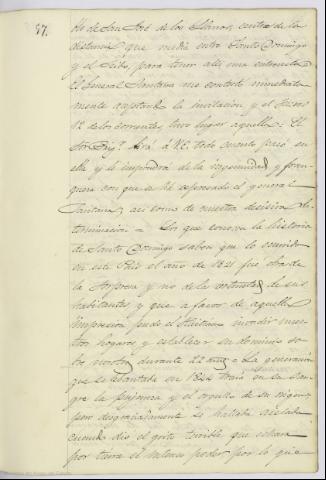 87.
to de San José de los Llanos, centro de la
distancia que media entre Santo Domingo
y el Seibo, para tener alli una entrevista.
El General Santana me contestó inmediata-
mente aceptando la invitacion y el Jueves
12 de los corrientes, tuvo lugar aquella: El
Sor Brigr. dirá á V.E. todo cuanto pasó en
ella y le impondrá de la ingenuidad y fran-
queza con que se há espresado el general
Santana, asi como de nuestra decisiva de-
terminacion = Los que conocen la historia
de Santo Domingo saben que lo ocurrido
en este Pais el año de 1821 fué obra de
la sorpresa y no de la voluntad de sus
habitantes y que a favor de aquella
impresion pudo el Haitiano invadir nues-
tros hogares y establecer su dominio so-
bre nosotros durante 22 años = La generacion
que se levantaba en 1844 traia en su san-
gre la pujanza y el orgullo de su origen;
pero desgraciadamente se hallaba aislada
cuando dió el grito terrible que echara
por tierra el haitiano poder por lo que